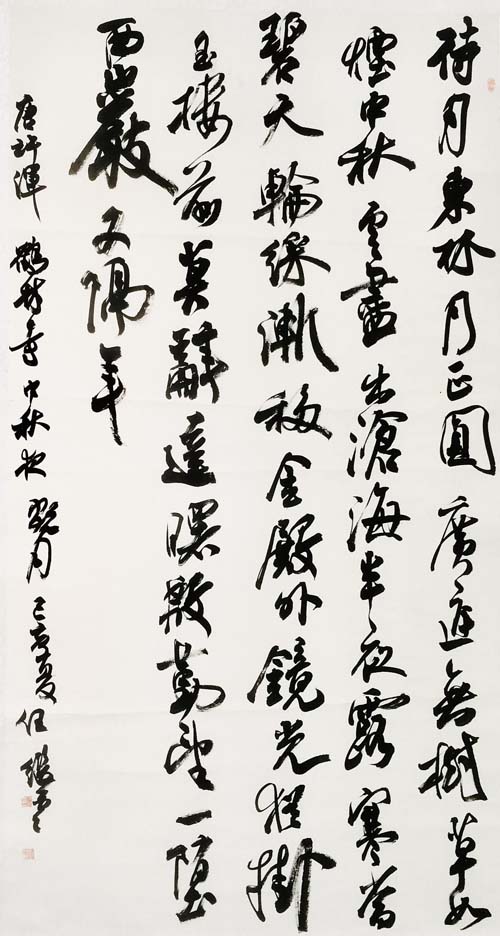 待月東林月正圓廣庭無樹草如
煙中秋雲盡出滄海半夜露寒當
碧天輪緣漸移金殿外鏡光猶掛
玉樓前莫辭達曙殷勤望一墮
西巖又隔年
唐許渾 鶴林寺中秋夜翫月 己亥夏任